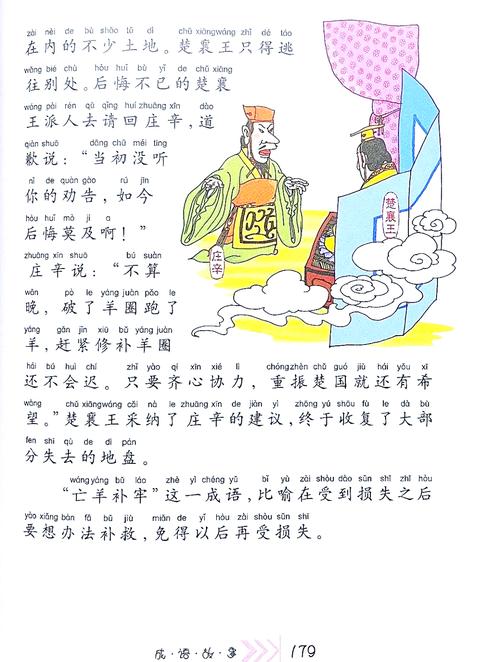 zài nèi de bù shǎo tǔ dì chǔ xiāngwáng zhǐ dé táo
在内的不少土地。楚襄王只得逃
wǎng bié chù hòu huǐ bù yǐ de chǔ xiāng
往别处。后悔不已的楚襄
wáng pài rén qù qǐng huí zhuāng xīn dào
王派人去请回庄辛，道
qiàn shuō dāng chū méi tīng
歉说：“当初没听
nǐ de quàn gào rú jīn
你的劝告，如今
hòu huǐ mò jí a
后悔莫及啊！”
zhuāng xīn shuō bú suàn
庄辛说：“不算
wǎn pò le yáng juàn pǎo le
晚，破了羊圈跑了
yáng gǎn jǐn xiū bǔ yáng juàn
羊，赶紧修补羊圈
hái bú huì chí zhǐ yào qí xīn xié lì chóngzhèn chǔ guó jiù hái yǒu xī
还不会迟。只要齐心协力，重振楚国就还有希
wàng chǔ xiāngwáng cǎi nà le zhuāng xīn de jiàn yì zhōng yú shōu fù le dà bù
望。”楚襄王采纳了庄辛的建议，终于收复了大部
fen shī qù de dì pán
分失去的地盘。
wángyáng bǔ láo zhè yī chéng yǔ bǐ yù zài shòu dào sǔn shī zhī hòu
“亡羊补牢”这一成语，比喻在受到损失之后
yào xiǎng bàn fǎ bǔ jiù miǎn de yǐ hòu zài shòu sǔn shī
要想办法补救，免得以后再受损失。
庄辛
楚襄王
成·语·故·事 179